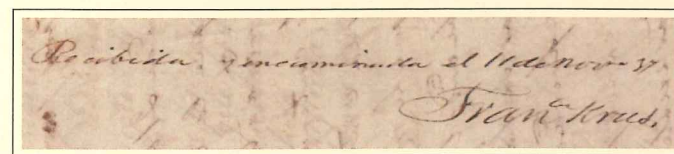 Recibida y encaminada el 11 de Nov.e 37
Fran.co Krus.